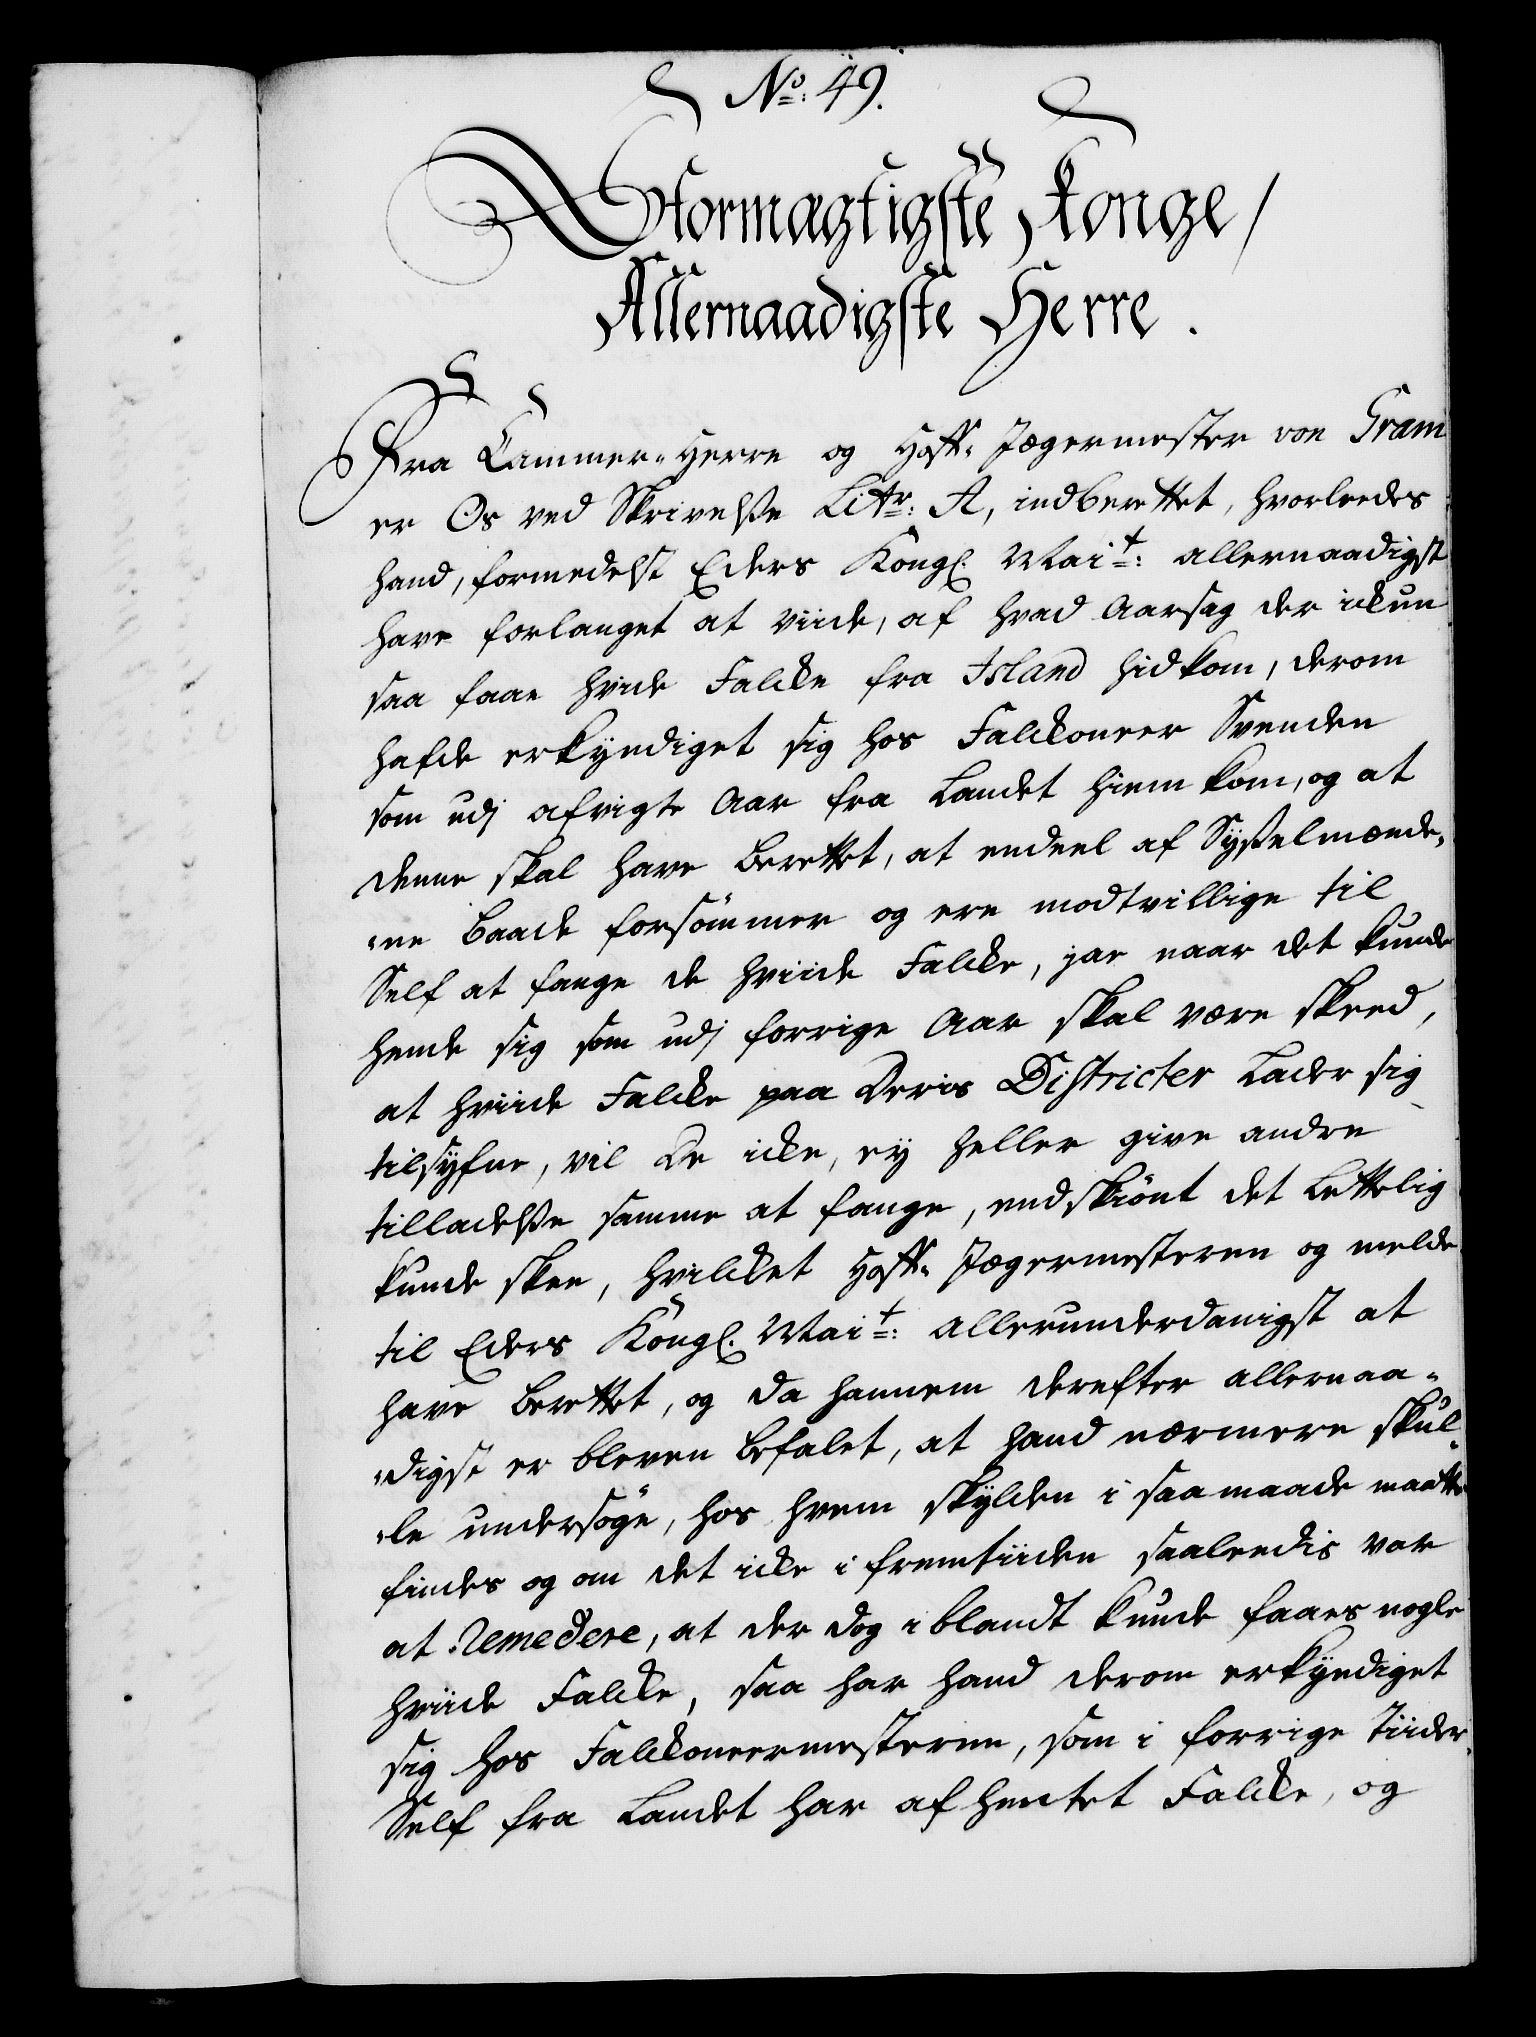 No: 49.
Stormægtigste Konge /
Allernaadigste Herre.
Fra Cammer-Herre og Hoff- Jægermester von Gram
er Os ved Skrivelsse Littr: A, indberettet, hvorleedes
hand, formedelst Eders Kongl. Mait: allernaadigst
have forlanget at viide, af hvad Aarsag der ickun
saa faae hvide Falcke fra Island hidkom, derom
hafde erkyndiget sig hos Falckoneer Svenden
som udj afvigte Aar fra Landet hiem kom, og at
denne skal have berettet, at endeel af Sysselmænde-
-ne baade forsömmer og ere modtvillige til
Self at fange de hviide Falcke, jae naar det kunde
hende sig som udj forrige Aar skal være skeed,
at hviide Falcke paa Deris Districter Lader sig
tilsyfne, vil De icke, ey heller give andre
tilladelsse samme at fange, endskiönt det Lettelig
kunde skee, hvilcket Hoff- Jægermesteren og melde
til Eders Kongl. Mait: allerunderdanigst at
have berettet, og da hannem derefter allernaa-
-digst er bleven befalet, at hand nærmere skul-
-le undersöge, hos hvem skylden i saa maade maatte
findes og om det icke i fremtiiden saaleedis var
at Remedere, at der dog iblandt kunde faaes nogle
hviide Falcke, saa har hand derom erkyndiget
sig hos Falckoneermesterne, som i forrige Tiider
Self fra Landet har afhentet Falcke, og